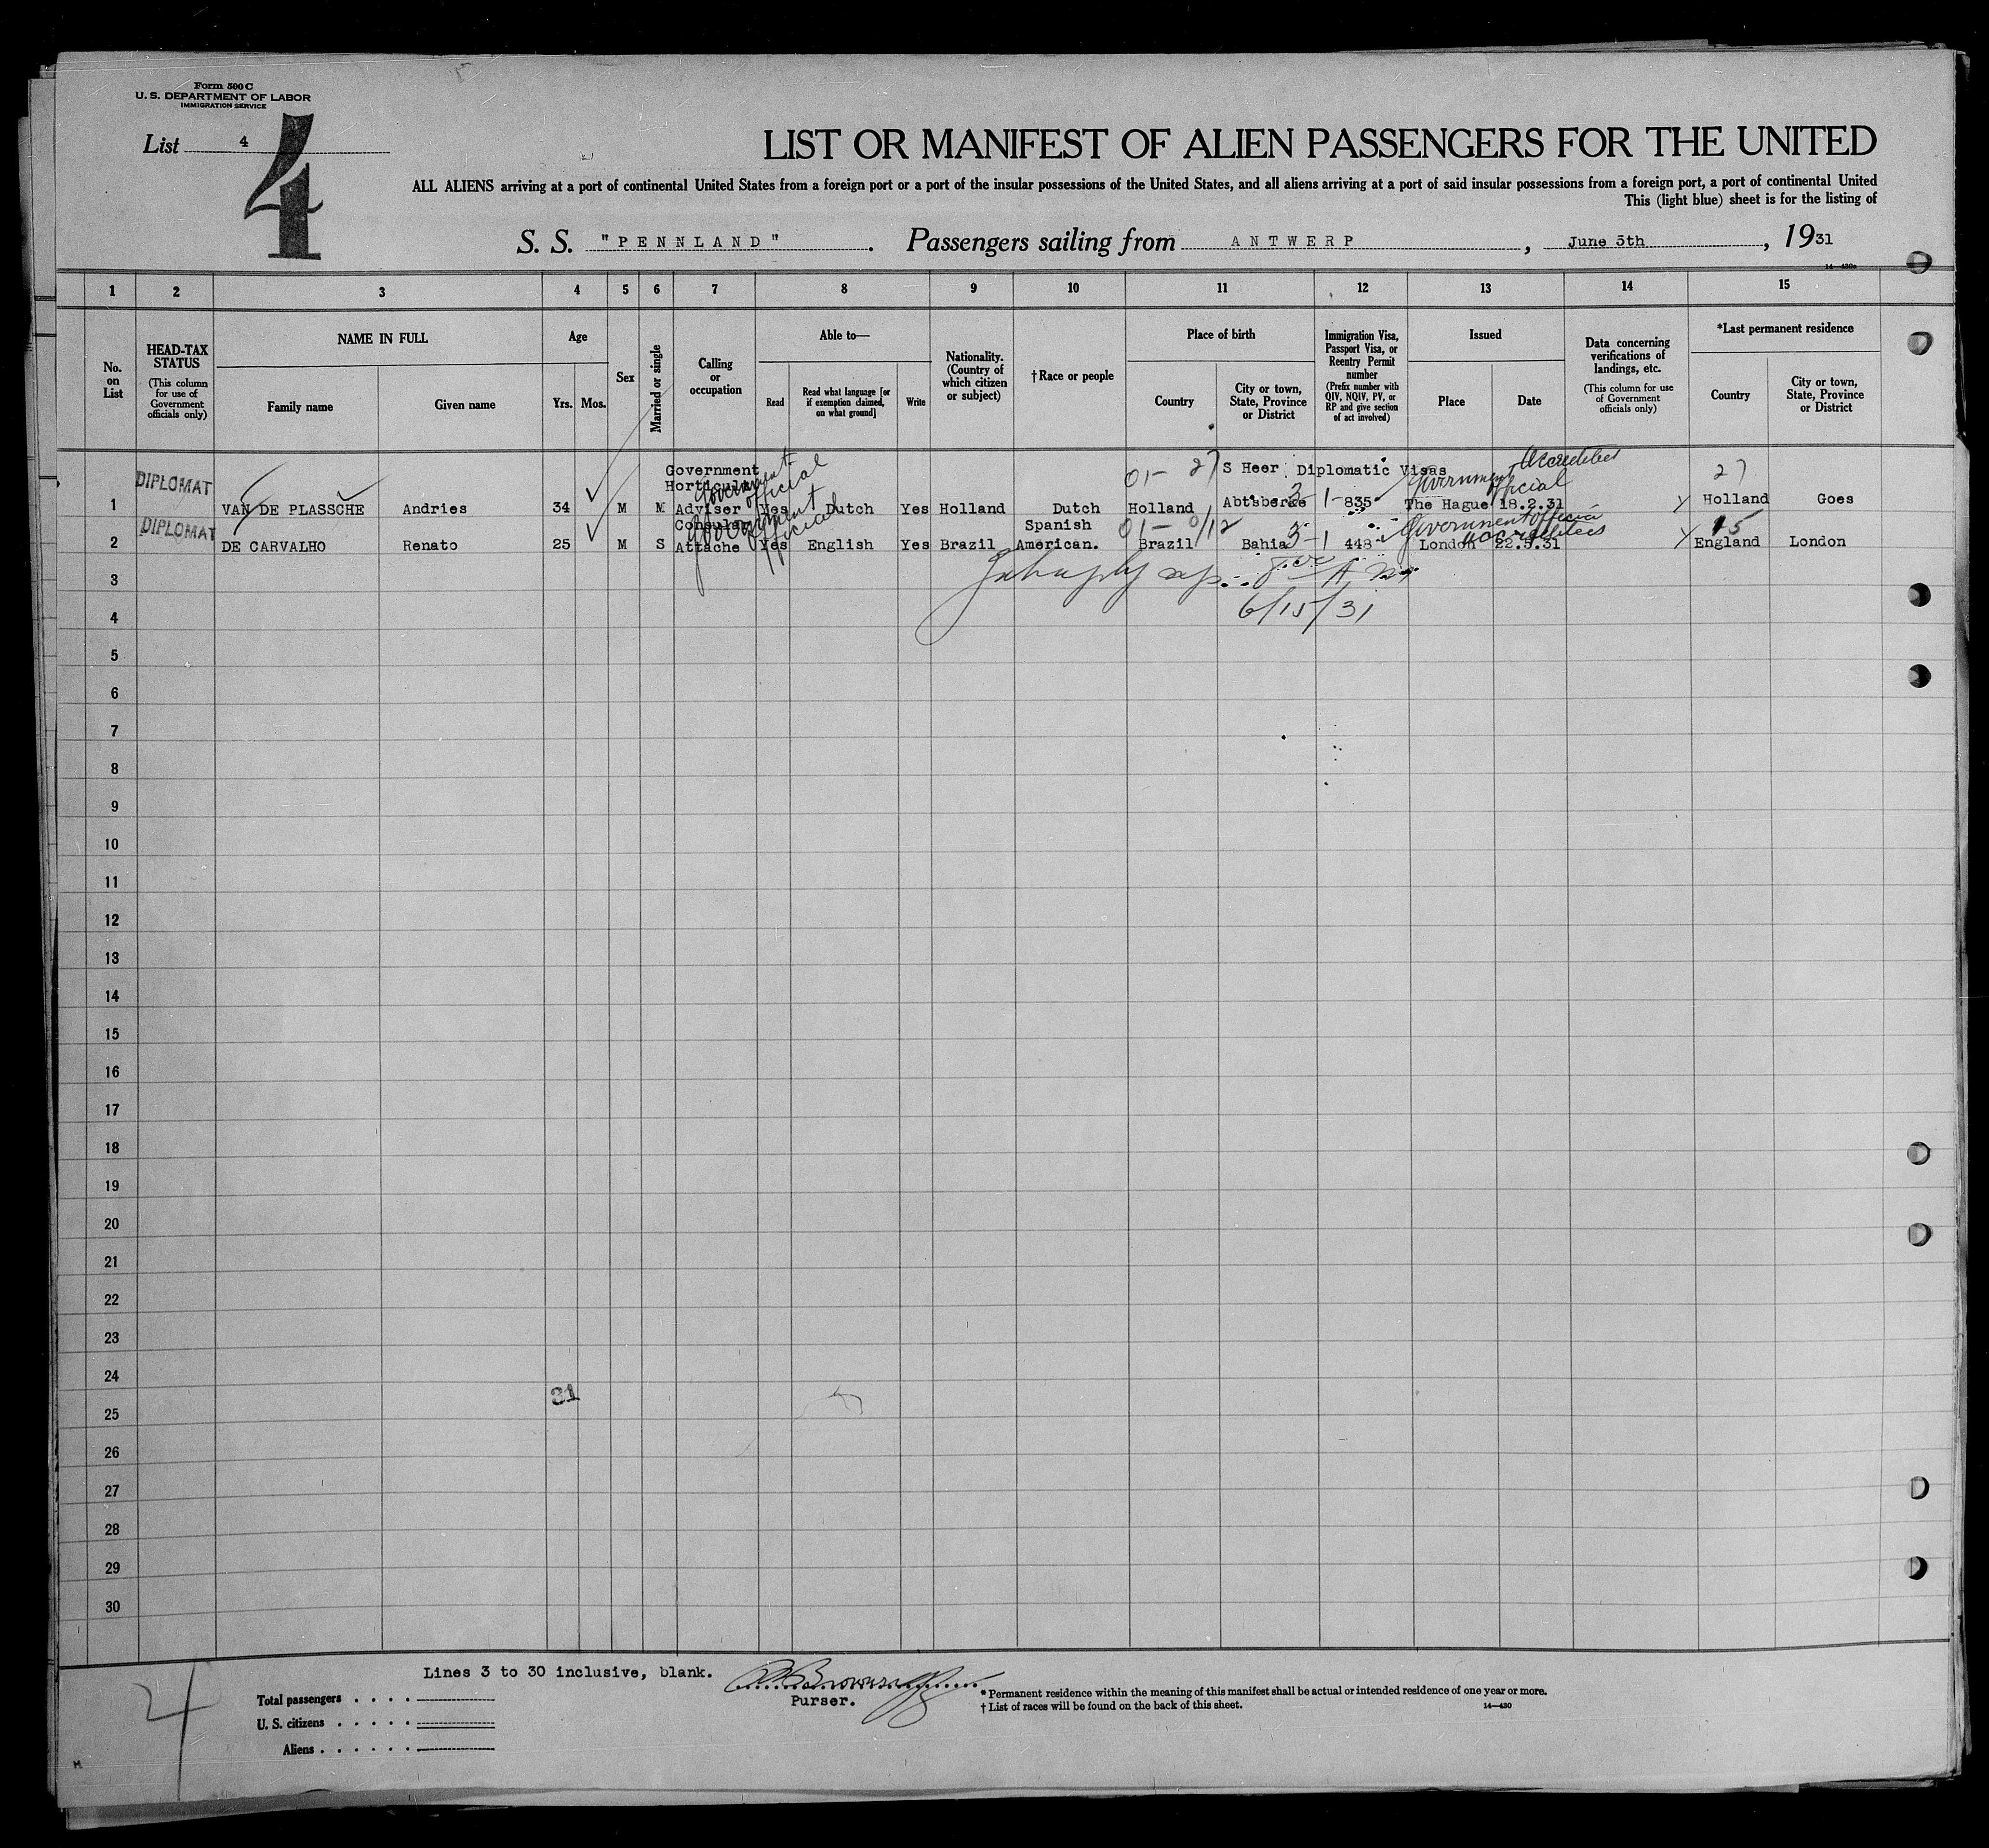 Form 500 C
U. S. DEPARTMENT OF LABOR
IMMIGRATION SERVICE
List 4
4
LIST OR MANIFEST OF ALIEN PASSENGERS FOR THE UNITED
ALL ALIENS arriving at a port of continental United States from a foreign port or a port of the insular possessions of the United States, and all aliens arriving at a port of said insular possessions from a foreign port, a port of continental United
This (light blue) sheet is for the listing of
S. S. "PENNLAND". Passengers sailing from ANTWERP, June 5th, 1931
1 2 3 4 5 6 7 8 9 10 11 12 13 14 15
No. on List
HEAD-TAX STATUS
(This column for use of Government officials only)
NAME IN FULL
Family name
Given name
Age
Yrs. Mos.
Sex
Married or single
Calling or occupation
Able to—
Read
Read what language [or if exemption claimed, on what ground]
Write
Nationality. (Country of which citizen or subject)
†Race or people
Place of birth
Country
City or town, State, Province or District
Immigration Visa, Passport Visa, or Reentry Permit number
(Prefix number with QIV, NQIV, PV, or RP and give section of act involved)
Issued
Place
Date
Data concerning verifications of landings, etc.
(This column for use of Government officials only)
*Last permanent residence
Country
City or town, State, Province or District
DIPLOMAT
Government Horticultural
Government official
01- 27
S Heer
Diplomatic Visas
Government official Accredited
27
1 VAN DE PLASSCHE Andries 34 M M Adviser Yes Dutch Yes Holland Dutch Holland Abtskerke 3-1- 835 The Hague 18.2.31 Holland Goes
DIPLOMAT
Consular
Government official
Spanish
01- 0/12
Government official accredited
15
2 DE CARVALHO Renato 25 M S Attache Yes English Yes Brazil American. Brazil Bahia 3-1 448 London 22.5.31 England London
3
6/15/31
4
5
6
7
8
9
10
11
12
13
14
15
16
17
18
19
20
21
22
23
24
31
25
26
27
28
29
30
Lines 3 to 30 inclusive, blank.
Purser.
Total passengers . . . .
U. S. citizens . . . . .
Aliens . . . . . .
*Permanent residence within the meaning of this manifest shall be actual or intended residence of one year or more.
†List of races will be found on the back of this sheet.
14—430
4